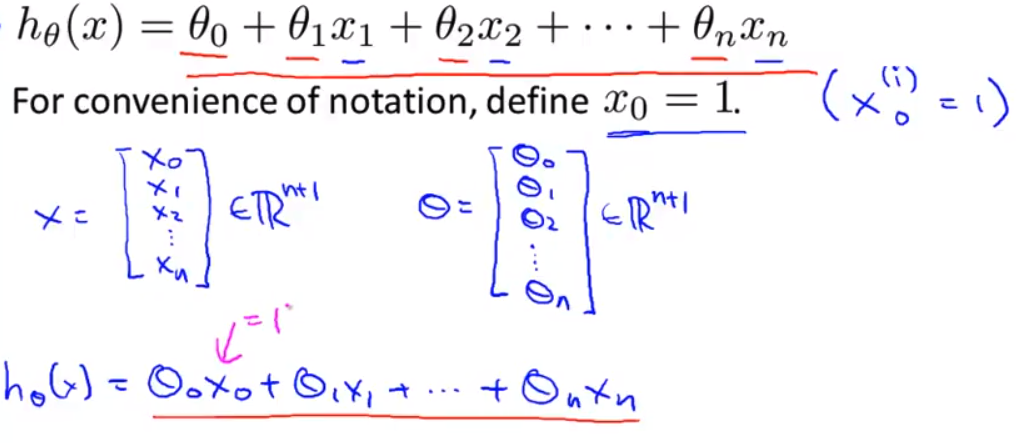 hθ(x) = θ0 + θ1x1 + θ2x2 + ⋯ + θnxn
For convenience of notation, define x0 = 1. (x0^(i) = 1)
x = [x0 x1 x2 ⋮ xn] ∈ ℝ^n+1 θ = [θ0 θ1 θ2 ⋮ θn] ∈ ℝ^n+1
= 1
hθ(x) = θ0x0 + θ1x1 + ⋯ + θnxn